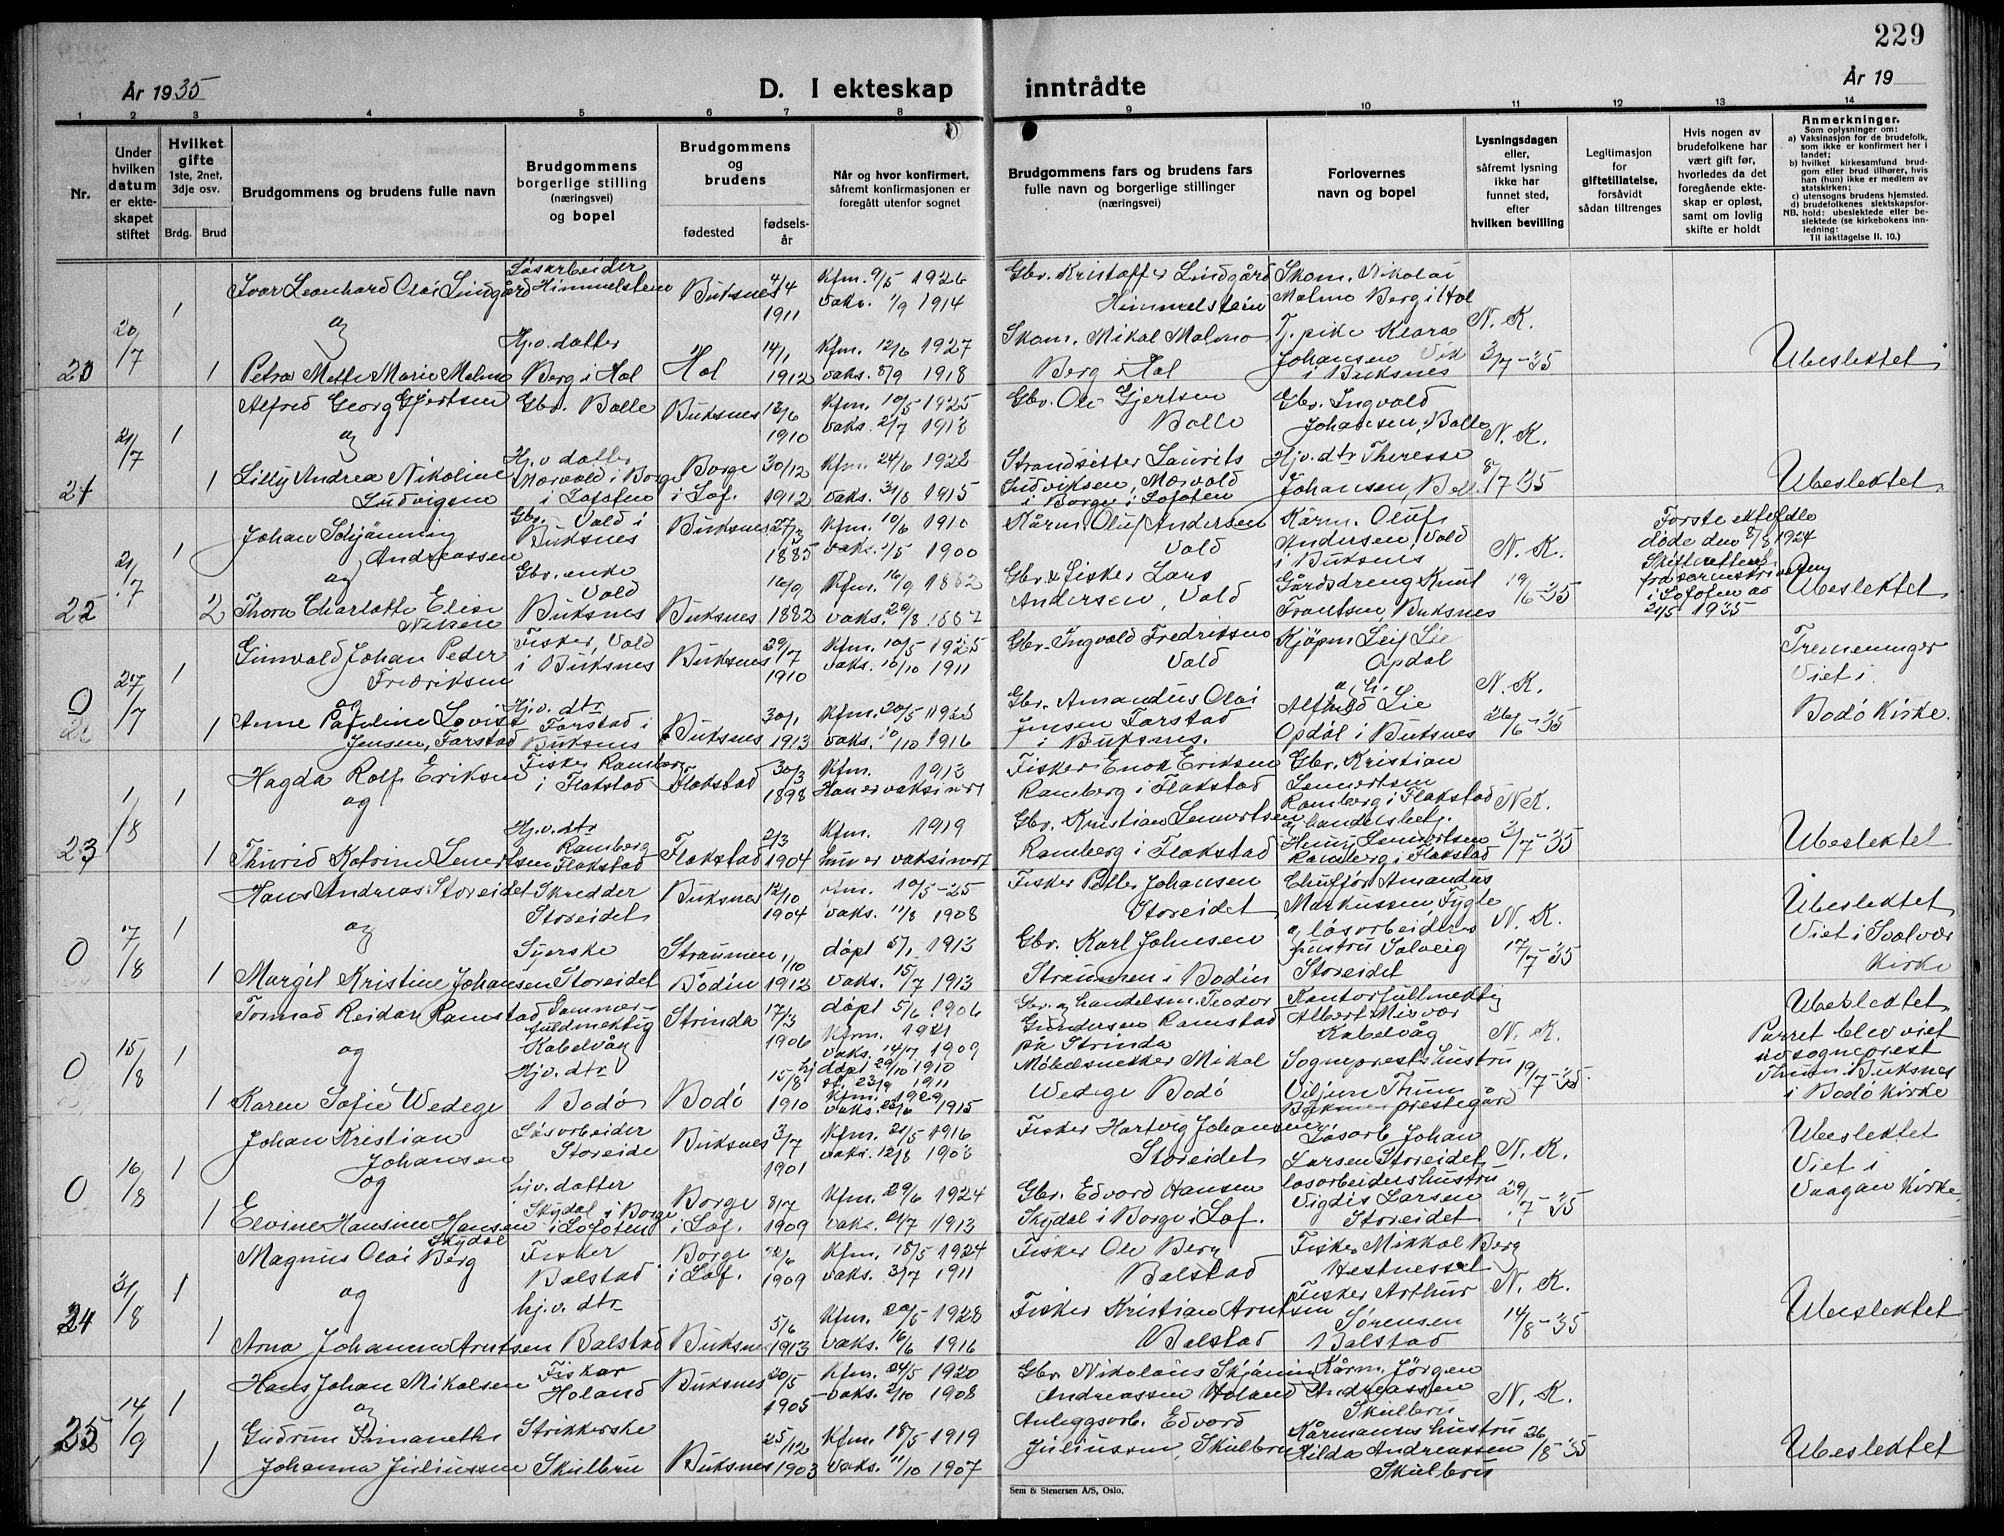 229
År 1935
D. I ekteskap inntrådte
År 19
1 2 3 4 5 6 7 8 9 10 11 12 13 14
Nr.
Under hvilken datum er ekteskapet stiftet
Hvilket gifte 1ste, 2net, 3dje osv.
Brdg. Brud
Brudgommens og brudens fulle navn
Brudgommens borgerlige stilling (næringsvei) og bopel
Brudgommens og brudens
fødested
fødselsår
Når og hvor konfirmert, såfremt konfirmasjonen er foregått utenfor sognet
Brudgommens fars og brudens fars fulle navn og borgerlige stillinger (næringsvei)
Forlovernes navn og bopel
Lysningsdagen eller, såfremt lysning ikke har funnet sted, efter hvilken bevilling
Legitimasjon for giftetillatelse, forsåvidt sådan tiltrenges
Hvis nogen av brudefolkene har vært gift før, hvorledes da det foregående ekteskap er opløst, samt om lovlig skifte er holdt
Anmerkninger.
Som oplysninger om:
a) Vaksinasjon for de brudefolk, som ikke er konfirmert her i landet;
b) hvilket kirkesamfund brudgom eller brud tilhører, hvis han (hun) ikke er medlem av statskirken;
c) utensogns brudens hjemsted.
d) brudefolkenes slektskapsforhold: ubeslektede eller beslektede (se kirkebokens innledning:
NB. Til iakttagelse II. 10.)
20 20/7 1 Ivar Leonhard Olai Lindgård Løsarbeider Himmelstein Buksnes 4/4 1911 Kfm. 9/5 1926 vaks. 1/9 1914 Gbr. Kristoffer Lindgård Himmelstein Skom. Nikolai Malmo Berg i Hol N. K.
og
1 Petra Mette Marie Malmo Hj.v. datter Berg i Hol Hol 14/1 1912 Kfm. 12/6 1927 vaks. 8/9 1918 Skom. Mikal Malmo Berg i Hol Tj. pike Klara Johansen Vik i Buksnes 3/7-35 Ubeslektet
21 21/7 1 Alfred Georg Gjertsen Gbr. Bolle Buksnes 12/6 1910 Kfm. 10/5 1925 vaks. 2/7 1913 Gbr. Ole Gjertsen Bolle Gbr. Ingvald Johansen, Bolle N. K.
og
1 Lilly Andrea Nikoline Ludvigsen Hj.v datter Mærvold i Borge i Lofoten Borge i Lof. 30/12 1912 Kfm. 24/6 1928 vaks. 31/8 1915 Strandsitter Laurits Ludviksen, Mærvold i Borge i Lofoten Hjv. dtr Therese Johansen, Bolle 8/7 35 Ubeslektet
22 21/7 1 Johan Schjånning Andreassen Gbr. Vold i Buksnes Buksnes 27/3 1885 Kfm. 10/6 1910 vaks. 1/5 1900 Kårm. Oluf Andersen Vold Kårm. Oluf Andersen, Vold i Buksnes N. K.
og
2 Thora Charlotte Elise Nilsen Gbr. enke Vold Buksnes Buksnes 16/9 1882 Kfm. 16/9 vaks. 20/8 1887 Gbr & fisker Lars Andersen, Vold Gårdsdreng Knut Frantsen Buksnes 19/6-35 Første ektefelle døde den 8/8 1924 Skifteattest fra sorenskriveren i Lofoten av 21/5 1935 Ubeslektet
0 27/7 1 Ginvald Johan Peder Fredriksen Fisker, Vold i Buksnes Buksnes 29/7 1910 Kfm. 10/5 1925 vaks. 16/10 1911 Gbr. Ingvald Fredriksen Vold Kjøpm Leif Lie Opdøl N. K. Tremeninger
og
1 Anne Pauline Lovise Jensen, Farstad Hj.v. dtr. Farstad i Buksnes Buksnes 30/1 1913 Kfm. 20/5 1928 vaks. 10/10 1916 Gbr. Amandus Olai Jensen Farstad i Buksnes. Alfhild Lie Opdøl i Buksnes 26/6-35 Viet i Bodø Kirke.
23 1/8 1 Hagda Rolf Eriksen Fisker Ramberg i Flakstad Flakstad 30/3 1898 Kfm. 1913 Han er vaksinert Fisker Enok Eriksen Ramberg i Flakstad Gbr. Kristian Lenertsen Ramberg i Flakstad N.K.
og
1 Thurid Katrine Lenertsen Hj.v. dtr Ramberg Flakstad Flakstad 2/3 1904 Kfm. 1919 hun er vaksinert Gbr. Kristian Lenertsen Ramberg i Flakstad og handelsbetj. Lenertsen Ramberg i Flakstad 3/7-35 Ubeslektet
0 7/8 1 Hans Andreas Storeidet Skredder Storeidet Buksnes 12/10 1904 Kfm. 10/5-25 vaks. 11/8 1908 Fisker Petter Johansen Storeidet Chuffør Amandus Markussen Fygle N. K. Ubeslektet
og
1 Margit Kristine Johansen Syerske Storeidet Straumen Bodin 1/10 1912 døpt 5/1 1913 vaks. 15/7 1913 Gbr. Karl Johnsen Straumen i Bodin og løsarbeiders hustru Solveig Storeidet 17/7-35 Viet i Svolvær Kirke
0 15/8 1 Tormod Reidar Ramstad fuldmektig Kabelvåg Strinda 17/3 1906 døpt 5/6 1906 Kfm. 1921 vaks. 14/7 1909 Gbr. og handelsm. Teodor Gundersen Ramstad på Strinda Kontorfullmektig Albert Misvær Kabelvåg N. K. Ubeslektet
og
1 Karen Sofie Wedege Hjv. dtr. Bodø Bodø 15/8 1910 hj døpt 29/10 1910 st. 23/9 1911 Kfm. 1929 vaks. 23/6 1915 Møbelsnekker Mikal Wedege Bodø Sogneprests hustru Thum Buksnes prestegård 19/7-35. Parret blev viet av sogneprest Thum i Buksnes i Bodø Kirke
0 16/8 1 Johan Kristian Johansen Løsarbeider Storeide Buksnes 3/7 1901 Kfm. 21/5 1916 vaks. 12/8 1903 Fisker Hartvig Johansen Storeidet Løsarb Johan Larsen Storeidet N. K. Ubeslektet
og
1 Elvine Hansine Hansen Skydal hjv. datter Skydal i Borge i Lofoten Borge i Lof. 8/7 1909 Kfm. 29/6 1924 vaks. 21/7 1913 Gbr. Edvard Hansen Skydal i Borge i Lof. løsarbeidershustru Vigdis Larsen Storeidet 29/7-35 Viet i Vaagan Kirke
24 31/8 1 Magnus Olai Berg Fisker Balstad Borge i Lof. 12/6 1909 Kfm. 18/5 1924 vaks. 3/7 1911 Fisker Ole Berg Balstad Fisker Mikkal Berg Hestneset N. K.
og
1 Arna Johanna Arntsen hj.v. dtr. Balstad Buksnes 5/6 1913 Kfm. 20/5 1928 vaks. 16/6 1916 Fisker Kristian Arntsen Balstad Fisker Arthur Sørensen Balstad 14/8-35 Ubeslektet
25 14/9 1 Hans Johan Mikalsen Fisker Holand Buksnes 20/5 1905 Kfm. 24/5 1920 vaks. 2/10 1908 Gbr. Nikolaus Skjånning Andreassen Holand Kårm. Jørgen Andreassen Skulbru N. K.
og
1 Gudrun Johanna Juliussen Strikkerske Skulbru Buksnes 25/12 1903 Kfm. 18/5 1919 vaks. 11/10 1907 Anleggsarb. Edvard Juliussen, Skulbru Kårmanns hustru Hilda Andreassen Skulbru 26/8-35 Ubeslektet
Sem & Stenersen A/S, Oslo.